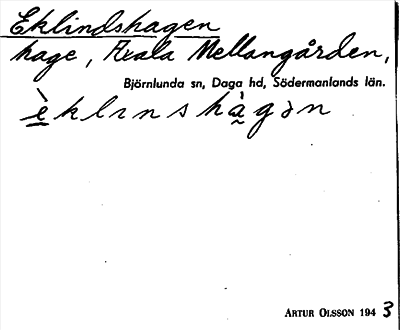 Eklindshagen
hage, Axala Mellangården,
Björnlunda sn, Daga hd, Södermanlands län.
è̲klınshà̰gən
ARTUR OLSSON 1943